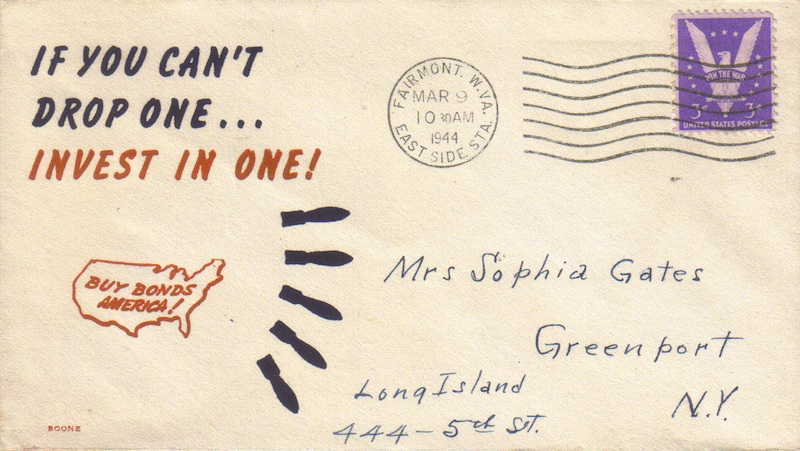 IF YOU CAN'T
DROP ONE...
INVEST IN ONE!
BUY BONDS
AMERICA!
BOONE
FAIRMONT, W.VA.
MAR 9
10 30 AM
1944
EAST SIDE STA.
WIN THE WAR
3¢ 3¢
UNITED STATES POSTAGE
Mrs Sophia Gates
Greenport
Long Island
N.Y.
444 - 5th St.